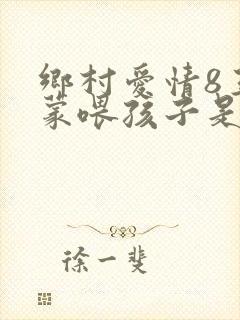 鄉村愛情8王
蒙喂孩子是
徐一斐